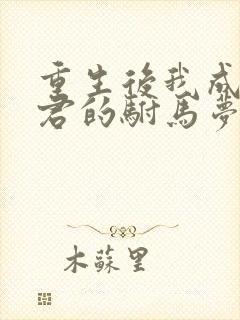 重生後我成
君的駙馬夢
木蘇里